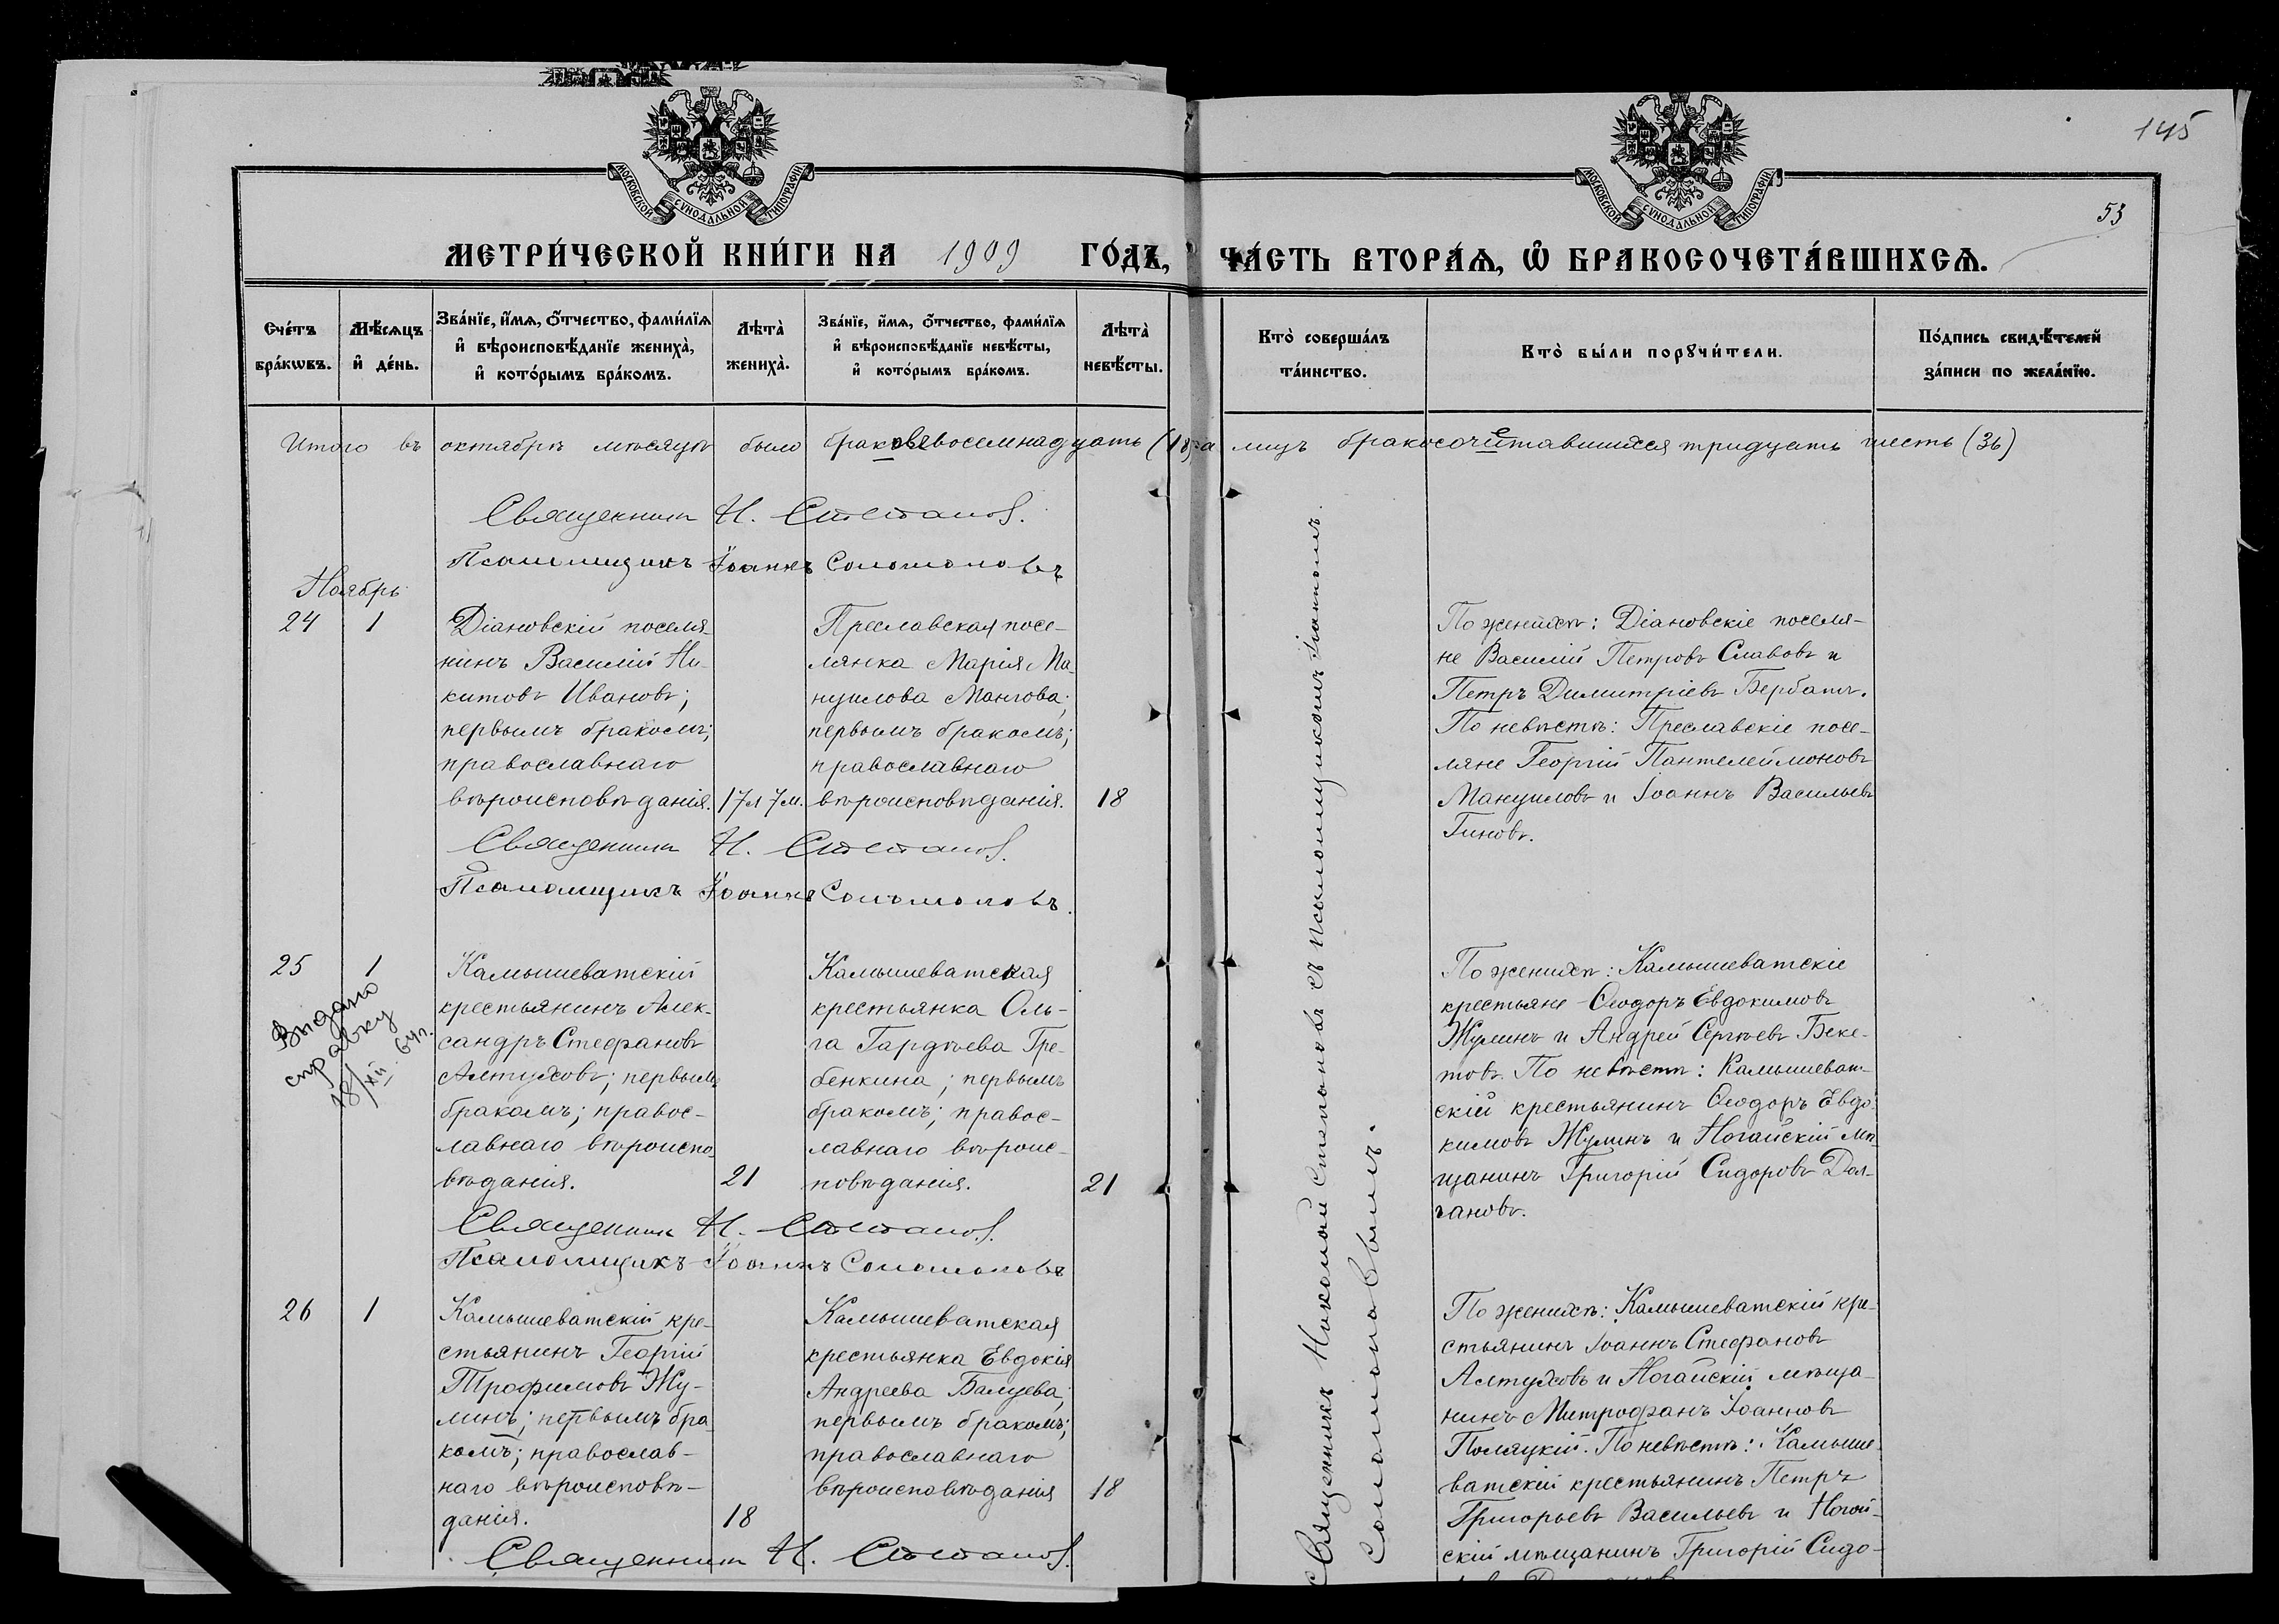 145
МОСКОВСКОЙ СУНОДАЛЬНОЙ ТИПОГРАФІИ
МОСКОВСКОЙ СУНОДАЛЬНОЙ ТИПОГРАФІИ
53
МЕТРИ́ЧЕСКОЙ КНИ́ГИ НА 1909 ГО́ДЪ, ЧА́СТЬ ВТОРА́Ѧ, Ѽ БРАКОСОЧЕТА́ВШИХСѦ.
Сче́тъ бра́кѡвъ.
Мѣ́сѧцъ и҆ де́нь.
Зва́нїе, и҆́мѧ, ѻ҆́тчество, фами́лїѧ
и҆ вѣроисповѣ́данїе жениха̀,
и҆ кото́рымъ бра́комъ.
Лѣта̀ жениха̀.
Зва́нїе, и҆́мѧ, ѻ҆́тчество, фами́лїѧ
и҆ вѣроисповѣ́данїе невѣ́сты,
и҆ кото́рымъ бра́комъ.
Лѣта̀ невѣ́сты.
Кто̀ соверша́лъ та́инство.
Кто̀ бы́ли порꙋчи́тели.
По́дпись свидѣ́телей за́писи по жела́нїю.
Итого въ октябрѣ мѣсяцѣ было браковъ восемнадцать (18), а лицъ бракосочетавшихся тридцать шесть (36)
Священникъ Н. Степанов.
Псаломщикъ Іоаннъ Соломоновъ
Ноябрь
24 1
Діановскій поселя-
нинъ Василій Ни-
китовъ Ивановъ;
первымъ бракомъ;
православнаго
вѣроисповѣданія. 17 л 7 м.
Преславская посе-
лянка Марія Ма-
нуилова Мангова;
первымъ бракомъ;
православнаго
вѣроисповѣданія. 18
Священникъ Н. Степанов.
Псаломщикъ Іоаннъ Соломоновъ.
По женихѣ: Діановскіе поселя-
не Василій Петровъ Славовъ и
Петръ Димитріевъ Бербатъ.
По невѣстѣ: Преславскіе посе-
ляне Георгій Пантелеймоновъ
Мануиловъ и Іоаннъ Васильевъ
Гиновъ.
Священникъ Николай Степановъ съ псаломщикомъ Іоанномъ
Соломоновымъ.
25 1
Выдано
справку
18/XII 64г.
Камышеватскій
крестьянинъ Алек-
сандръ Стефановъ
Алтуховъ; первымъ
бракомъ; правос-
лавнаго вѣроиспо-
вѣданія. 21
Камышеватская
крестьянка Оль-
га Гордѣева Гре-
бенкина; первымъ
бракомъ; правос-
лавнаго вѣроис-
повѣданія. 21
Священникъ Н. Степанов.
Псаломщикъ Іоаннъ Соломоновъ
По женихѣ: Камышеватскіе
крестьяне Ѳеодоръ Евдокимовъ
Жулинъ и Андрей Сергѣевъ Беке-
товъ. По невѣстѣ: Камышеват-
скій крестьянинъ Ѳеодоръ Евдо-
кимовъ Жулинъ и Ногайскій мѣ-
щанинъ Григорій Сидоровъ Дол-
гановъ.
26 1
Камышеватскій кре-
стьянинъ Георгій
Трофимовъ Жу-
линъ; первымъ бра-
комъ; православ-
наго вѣроисповѣ-
данія. 18
Камышеватская
крестьянка Евдокія
Андреева Балуева;
первымъ бракомъ;
православнаго
вѣроисповѣданія 18
Священникъ Н. Степанов.
По женихѣ: Камышеватскій кре-
стьянинъ Іоаннъ Стефановъ
Алтуховъ и Ногайскій мѣща-
нинъ Митрофанъ Іоанновъ
Поляцкій. По невѣстѣ: Камыше-
ватскій крестьянинъ Петръ
Григорьевъ Васильевъ и Ногай-
скій мѣщанинъ Григорій Сидо-